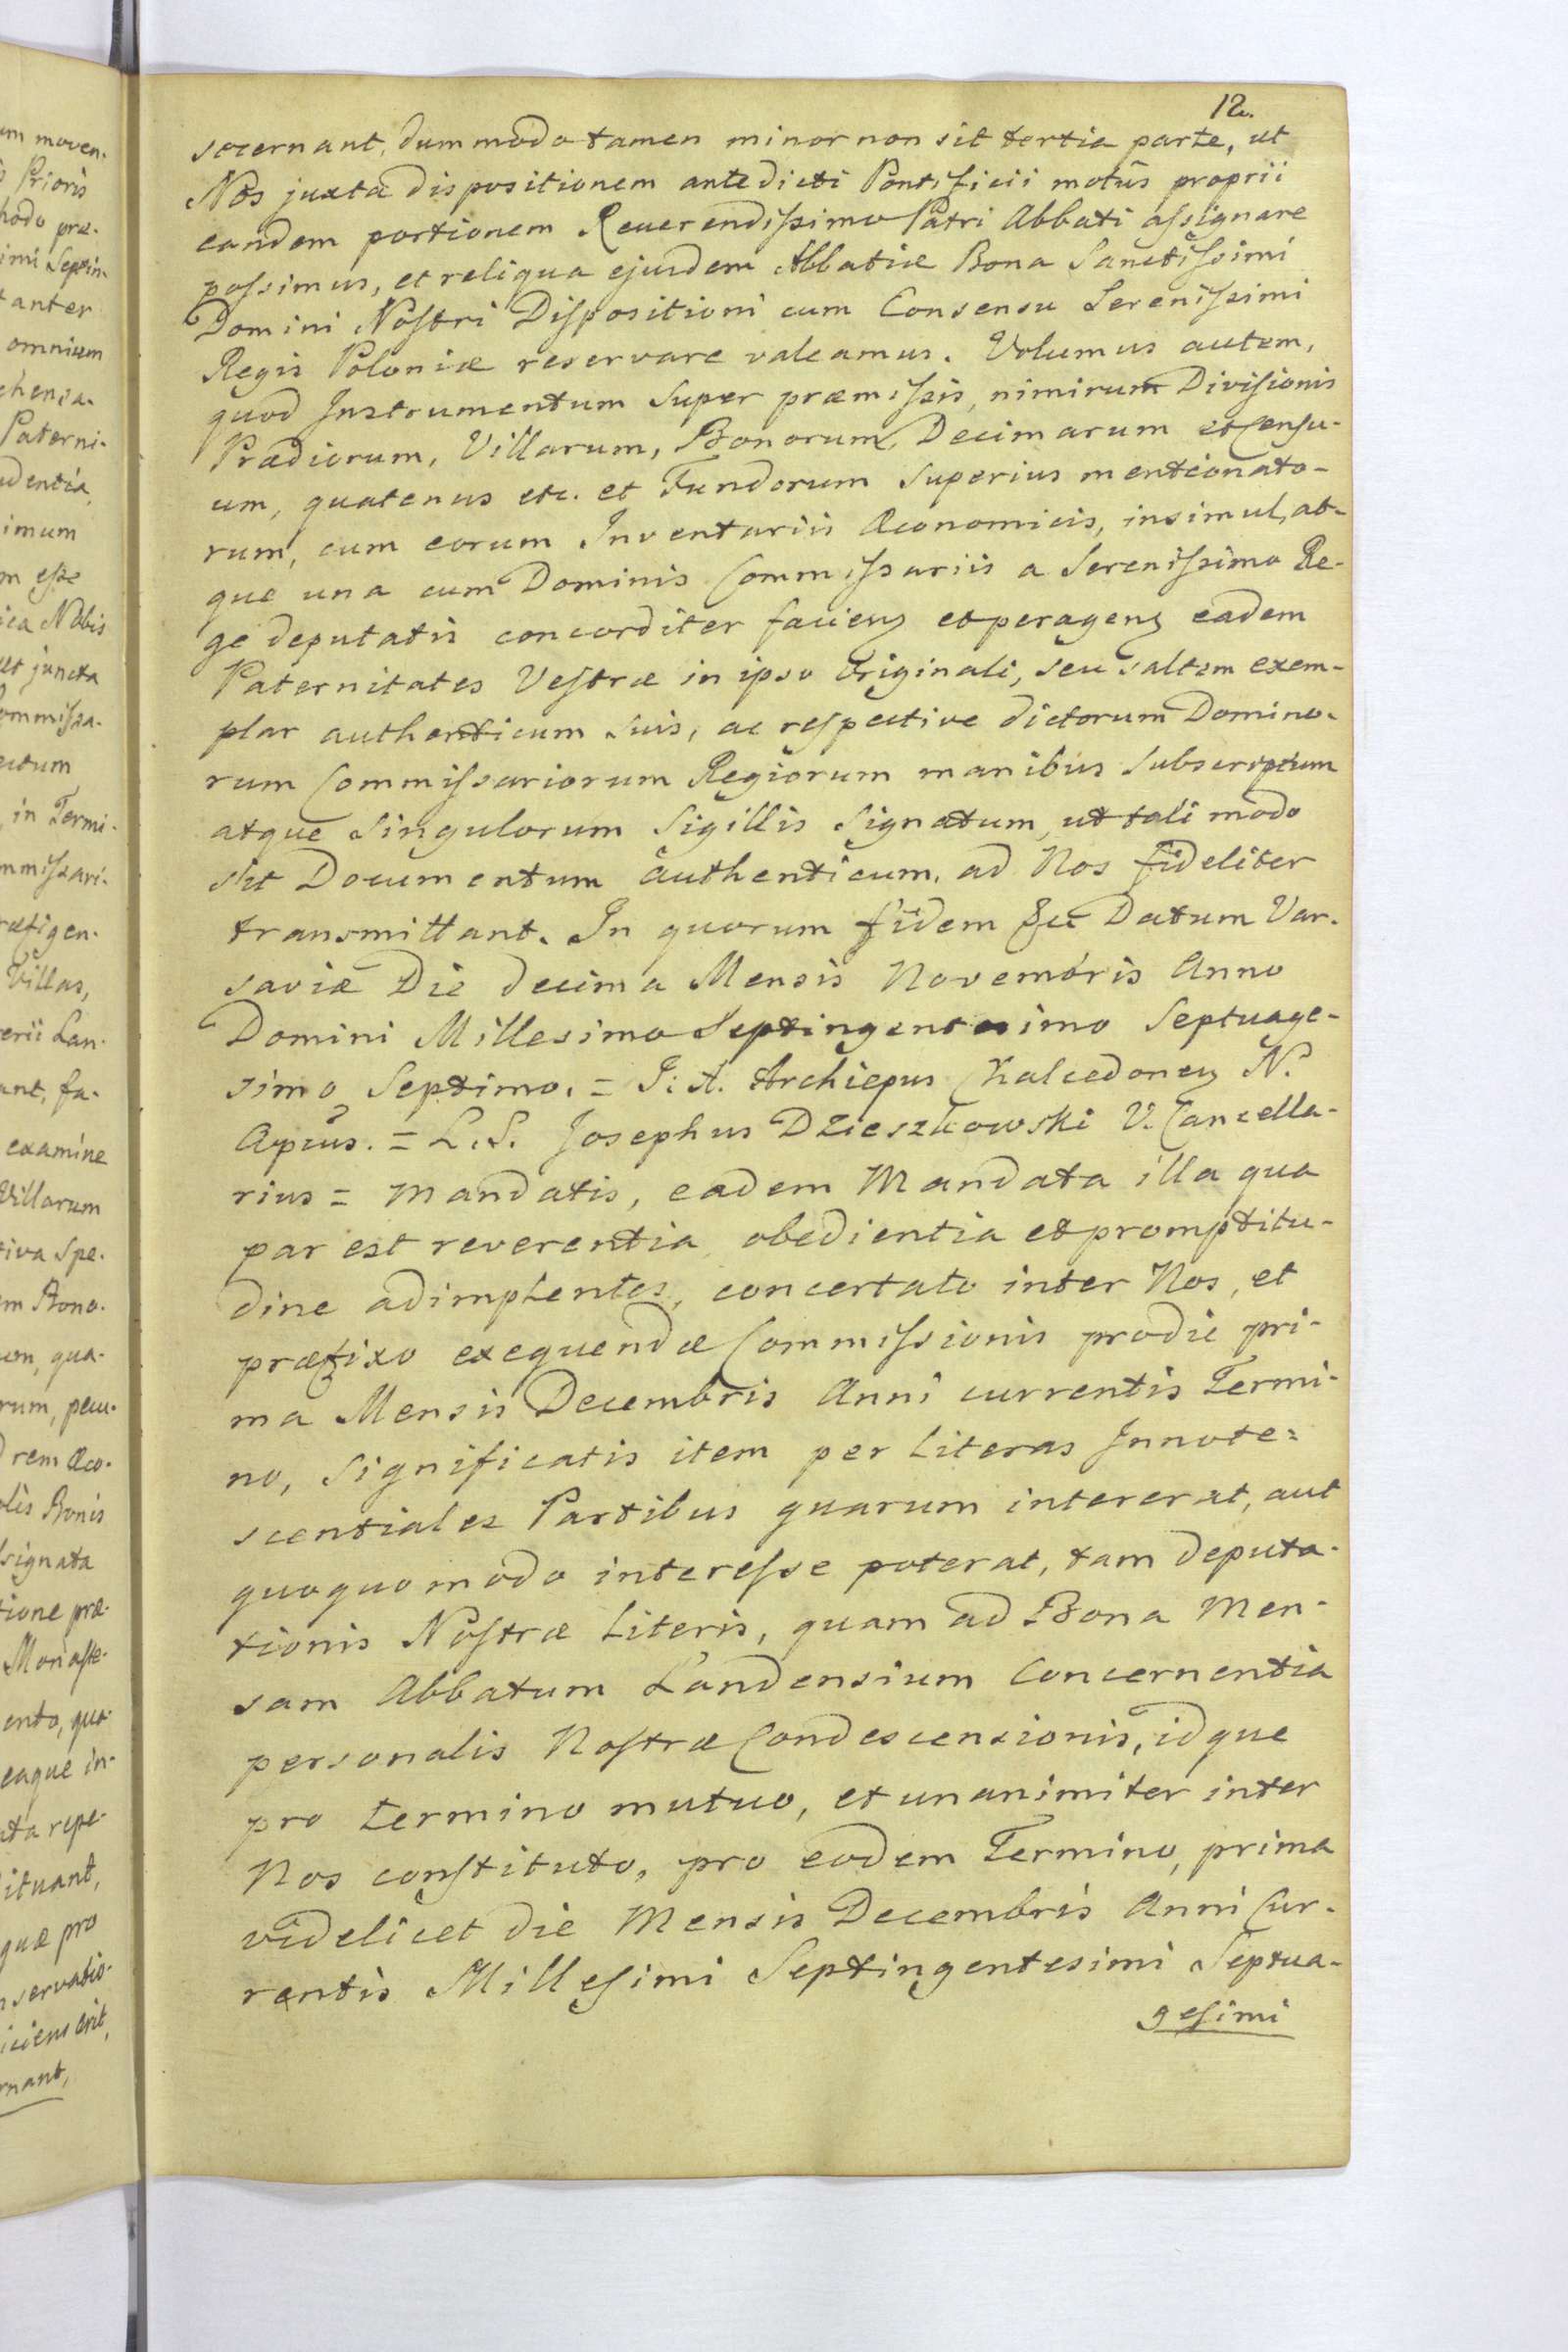 12.
secernant, dummodo tamen minor non sit tertia parte, ut
Nos juxta dispositionem antedicti Pontificii motûs proprii
eandem portionem Reuerendissimo Patri Abbati assignare
possimus, et reliqua ejusdem Abbatiæ Bona Sanctissimi
Domini Nostri Dispositioni cum Consensu Serenissimi
Regis Poloniæ reservare valeamus. Volumus autem,
quod Instrumentum super præmissis, nimirum Divisionis
Prædiorum, Villarum, Bonorum, Decimarum et Censu-
um, quatenus etc. et Fundorum superius mentionato-
rum, cum eorum Inventariis Œconomicis, insimul, at-
que una cum Dominis Commissariis a Serenissimo Re-
ge deputatis concorditer faciens et peragens eadem
Paternitates Vestræ in ipso Originali, seu saltem exem-
plar authenticum suis, ac respective dictorum Domino-
rum Commissariorum Regiorum manibus subscriptum
atque Singulorum Sigillis Signatum, ut tali modo
sit Documentum authenticum, ad Nos fideliter
transmittant. In quorum fidem &c Datum Var-
saviæ Die decima Mensis Novembris Anno
Domini Millesimo Septingentesimo Septuage-
simo Septimo. = J: A. Archiepus Chalcedonen N.
Aplius. = L. S. Josephus Dzieszkowski V. Cancella-
rius = Mandatis, eadem Mandata illa qua
par est reverentia obedientia et promptitu-
dine adimplentes, concertato inter Nos, et
præfixo exequendæ Commissionis pro die pri-
ma Mensis Decembris Anni currentis Termi-
no, significatis item per Literas Innote=
scentiales Partibus quarum intererat, aut
quoquomodo interesse poterat, tam deputa-
tionis Nostræ Literis, quam ad Bona Men-
sam Abbatum Landensium Concernentia
personalis Nostræ Condescensionis, idque
pro termino mutuo, et unanimiter inter
Nos constituto, pro eodem Termino, prima
videlicet die Mensis Decembris Anni Cur-
rentis Millesimi Septingentesimi Septua-
gesimi